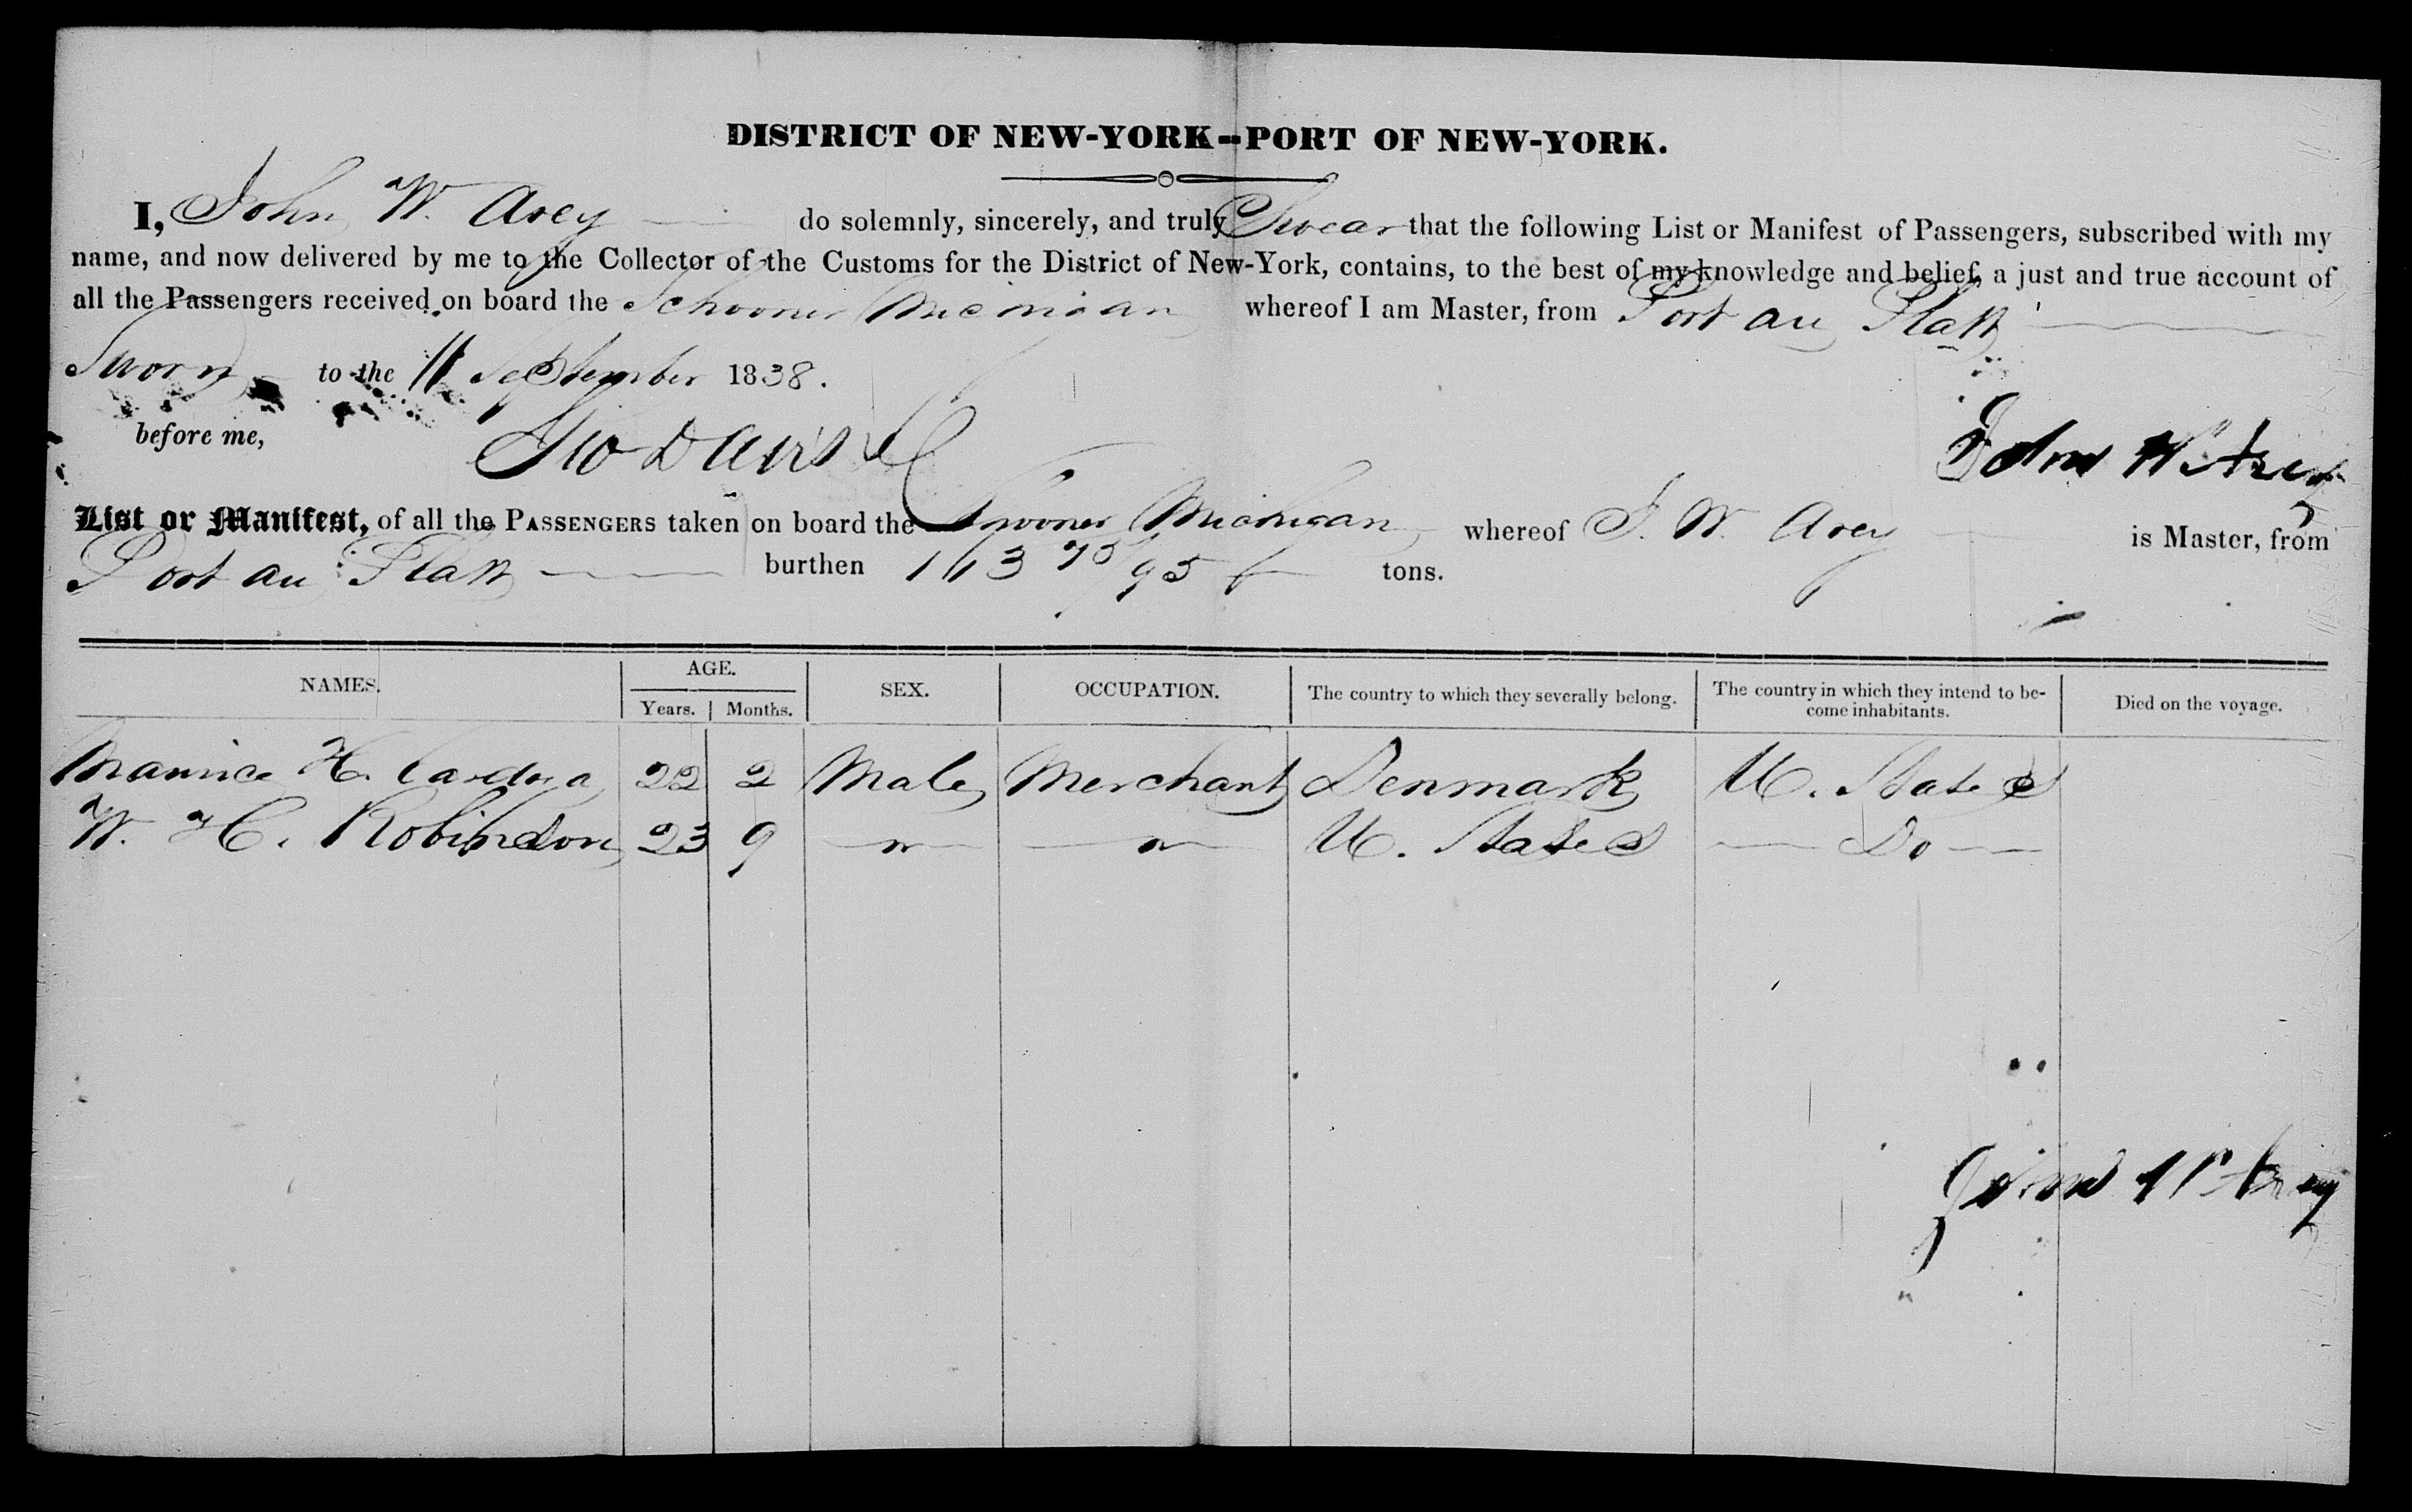 DISTRICT OF NEW-YORK--PORT OF NEW-YORK.
I, John W. Arey do solemnly, sincerely, and truly Swear that the following List or Manifest of Passengers, subscribed with my
name, and now delivered by me to the Collector of the Customs for the District of New-York, contains, to the best of my knowledge and belief, a just and true account of
all the Passengers received on board the Schooner Michigan whereof I am Master, from Port au Platt
Sworn to the 11 September 1838.
before me, Geo Davis John W Arey
List or Manifest, of all the PASSENGERS taken on board the Schooner Michigan whereof J. W. Arey is Master, from
Port au Platt burthen 113 75/95 tons.
NAMES. AGE. SEX. OCCUPATION. The country to which they severally belong. The country in which they intend to be-
come inhabitants. Died on the voyage.
Years. Months.
Maurice H. 22 2 Male Merchant Denmark U. States
W. H. Robinson 23 9 " " U. States Do
John W Arey